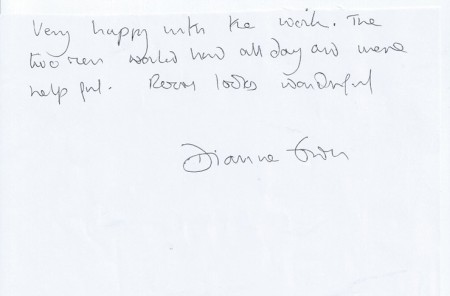 Very happy with the work. The
two men worked hard all day and were
helpful. Room looks wonderful
Dianne